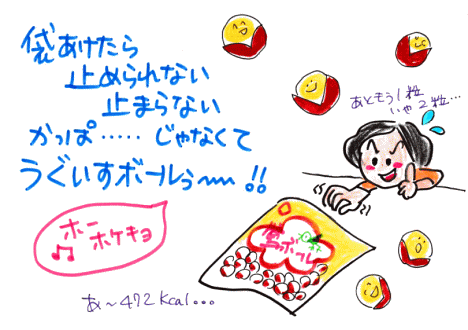 袋あけたら
止められない
止まらない
かっぱ……じゃなくて
うぐいすボールぅ〜〜!!
あともう1粒
いや2粒…
ホー
ホケキョ
鶯ボール
あ〜472kcal...